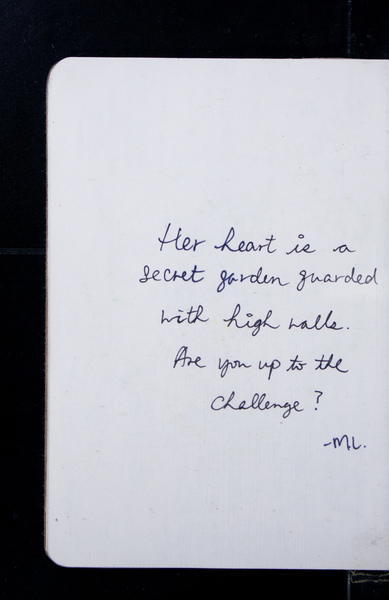 Her heart is a
secret garden guarded
with high walls.
Are you up to the
challenge?
-M.L.